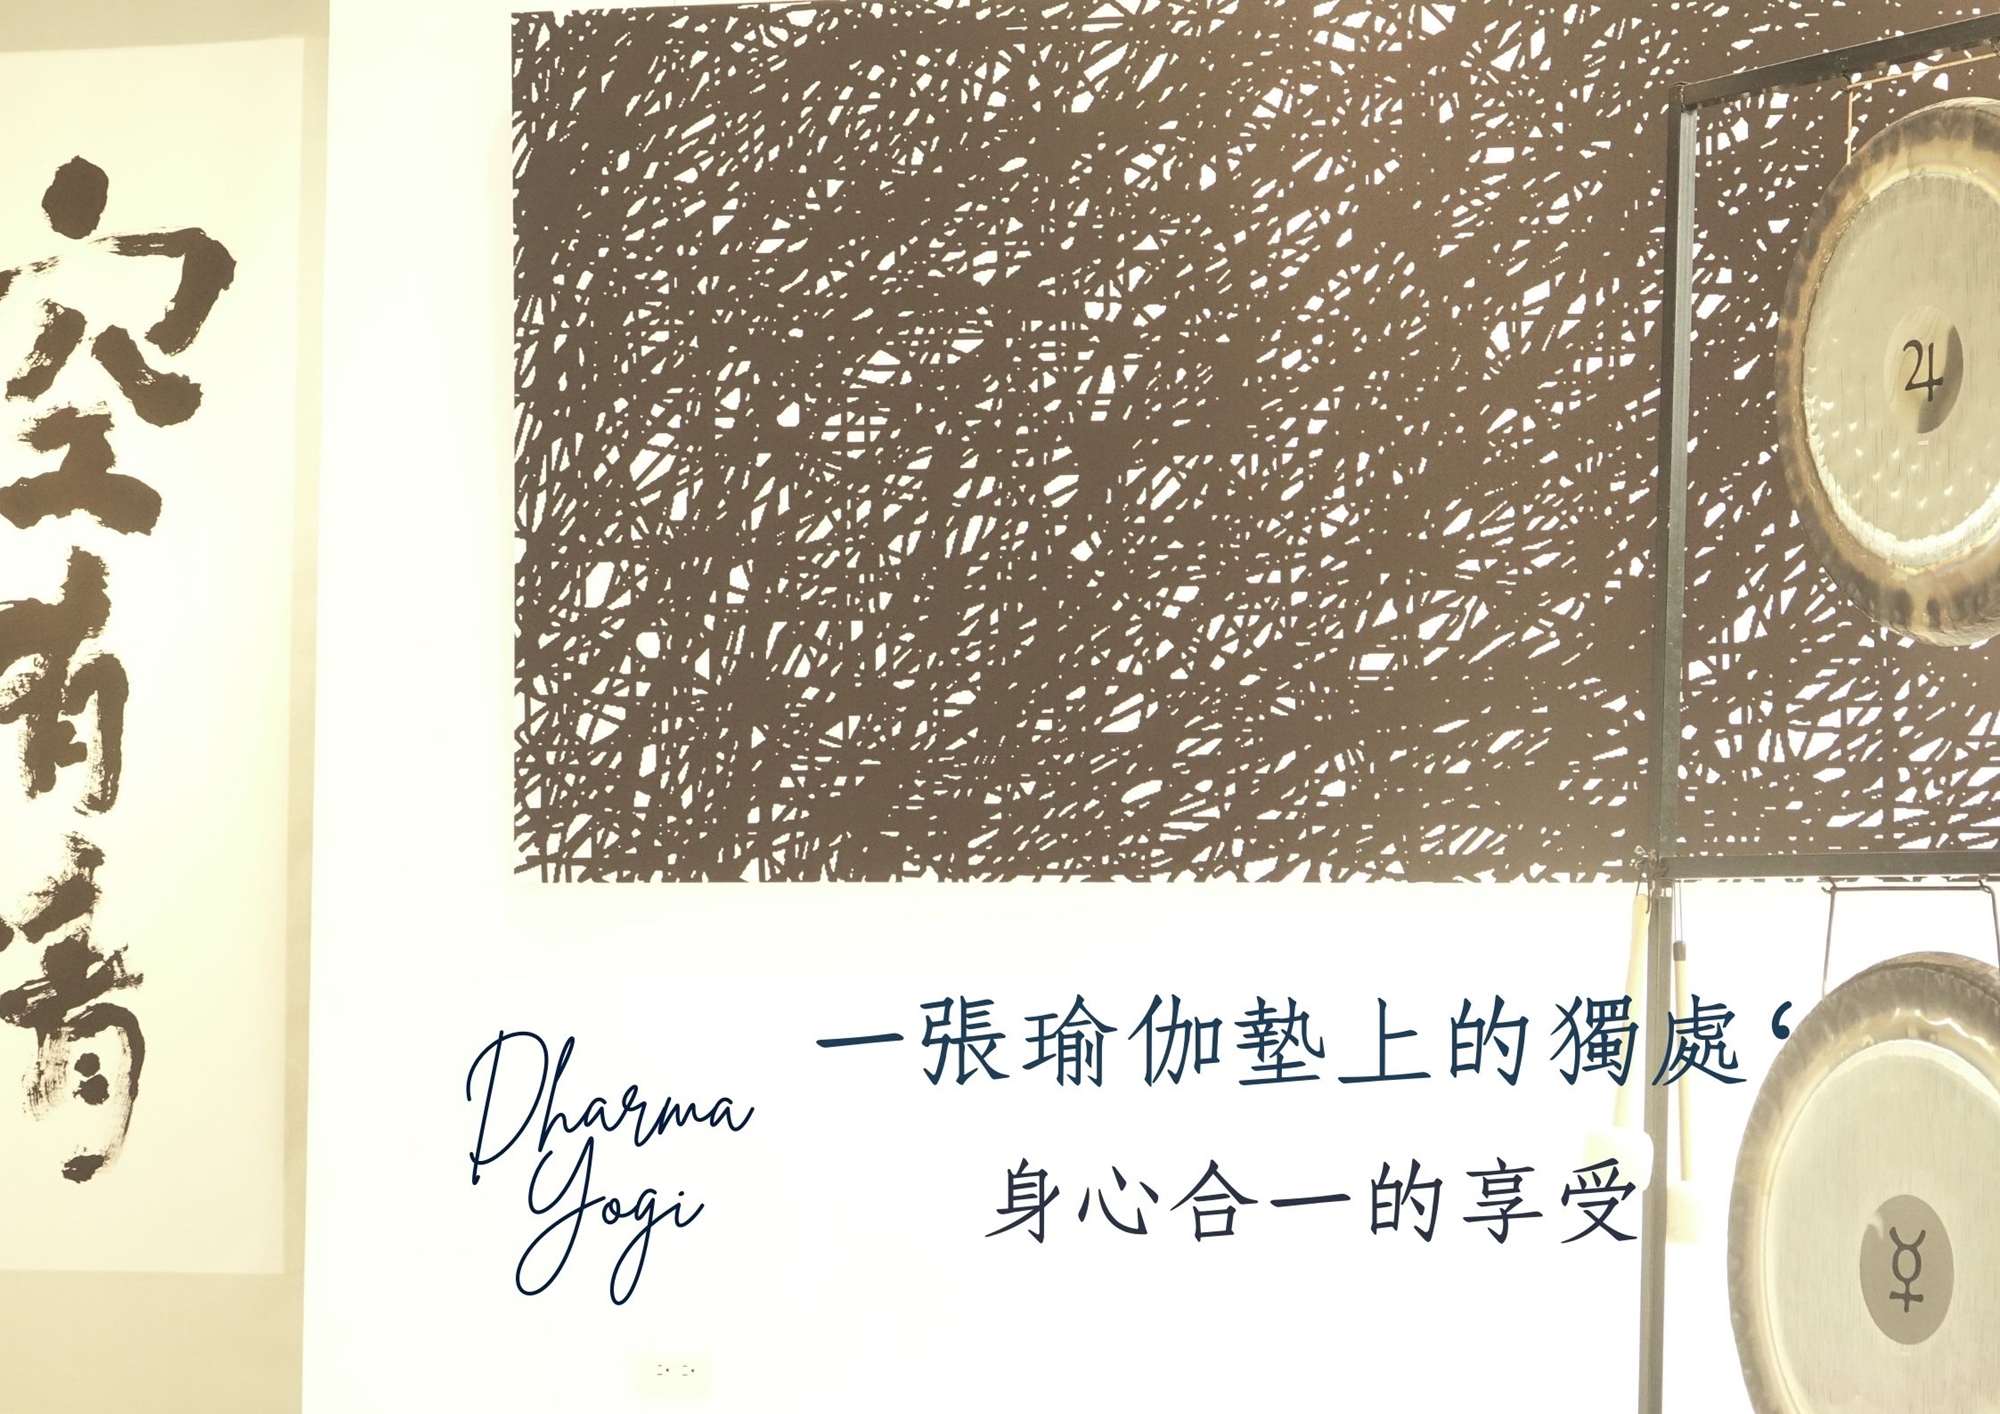 空
有
Dharma
Yogi
一張瑜伽墊上的獨處‘
身心合一的享受
♃
☿